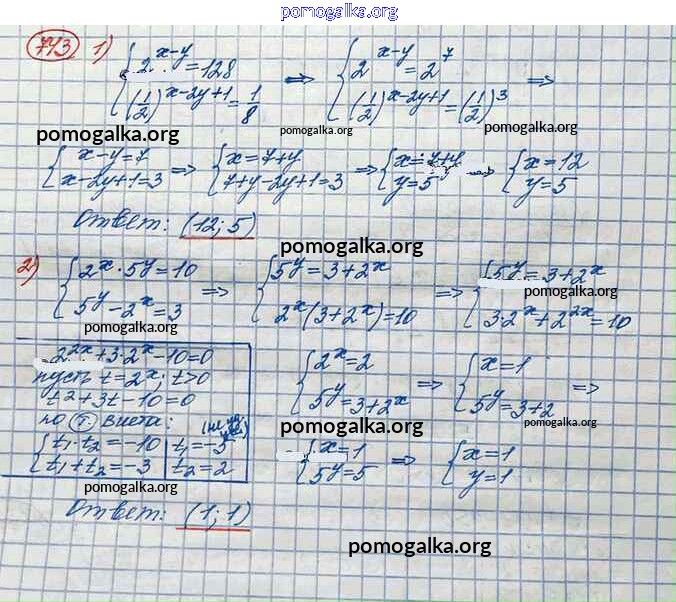 pomogalka.org
743 1) { 2^(x-y) = 128 ⟺ { 2^(x-y) = 2^7
(1/2)^(x-2y+1) = 1/8 (1/2)^(x-2y+1) = (1/2)^3 ⟹
pomogalka.org pomogalka.org pomogalka.org
{ x-y=7 ⟹ { x=7+y ⟹ { x=7+y ⟹ { x=12
x-2y+1=3 7+y-2y+1=3 y=5 y=5
Ответ: (12; 5)
pomogalka.org
2) { 2^x · 5^y = 10 ⟹ { 5^y = 3+2^x ⟹ { 5^y = 3+2^x
5^y - 2^x = 3 2^x(3+2^x)=10 3·2^x+2^(2x)=10
pomogalka.org pomogalka.org
2^(2x)+3·2^x-10=0
пусть t=2^x; t>0
t^2+3t-10=0
по т. Виета:
{ t₁·t₂=-10 t₁=-5
t₁+t₂=-3 t₂=2
{ 2^x=2 ⟹ { x=1 ⟹
5^y=3+2^x 5^y=3+2
pomogalka.org
{ x=1 ⟹ { x=1
5^y=5 y=1
pomogalka.org
Ответ: (1; 1)
pomogalka.org